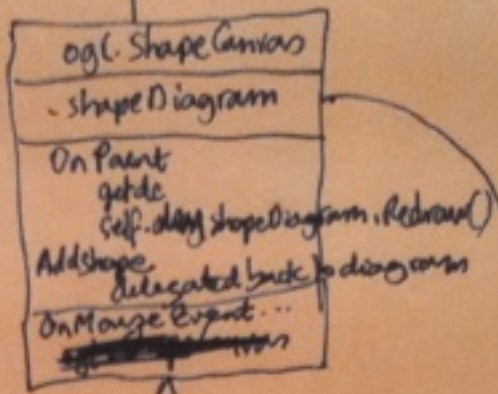 ogl.ShapeCanvas
.shapeDiagram
OnPaint
getdc
self.shapeDiagram.Redraw()
Addshape
delegated back to diagram
OnMouseEvent...